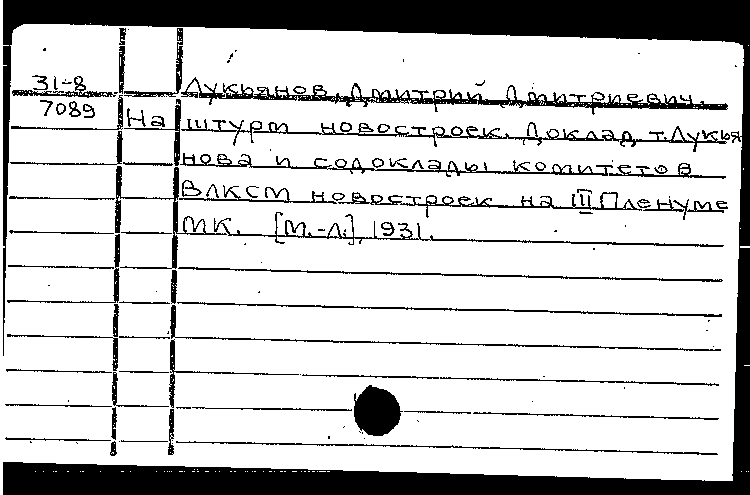 31-8 Лукьянов, Дмитрий Дмитриевич.
7089 На штурм новостроек. Доклад т. Лукья
нова и содоклады комитетов
ВЛКСМ новостроек на III Пленуме
МК. [М.-Л.], 1931.